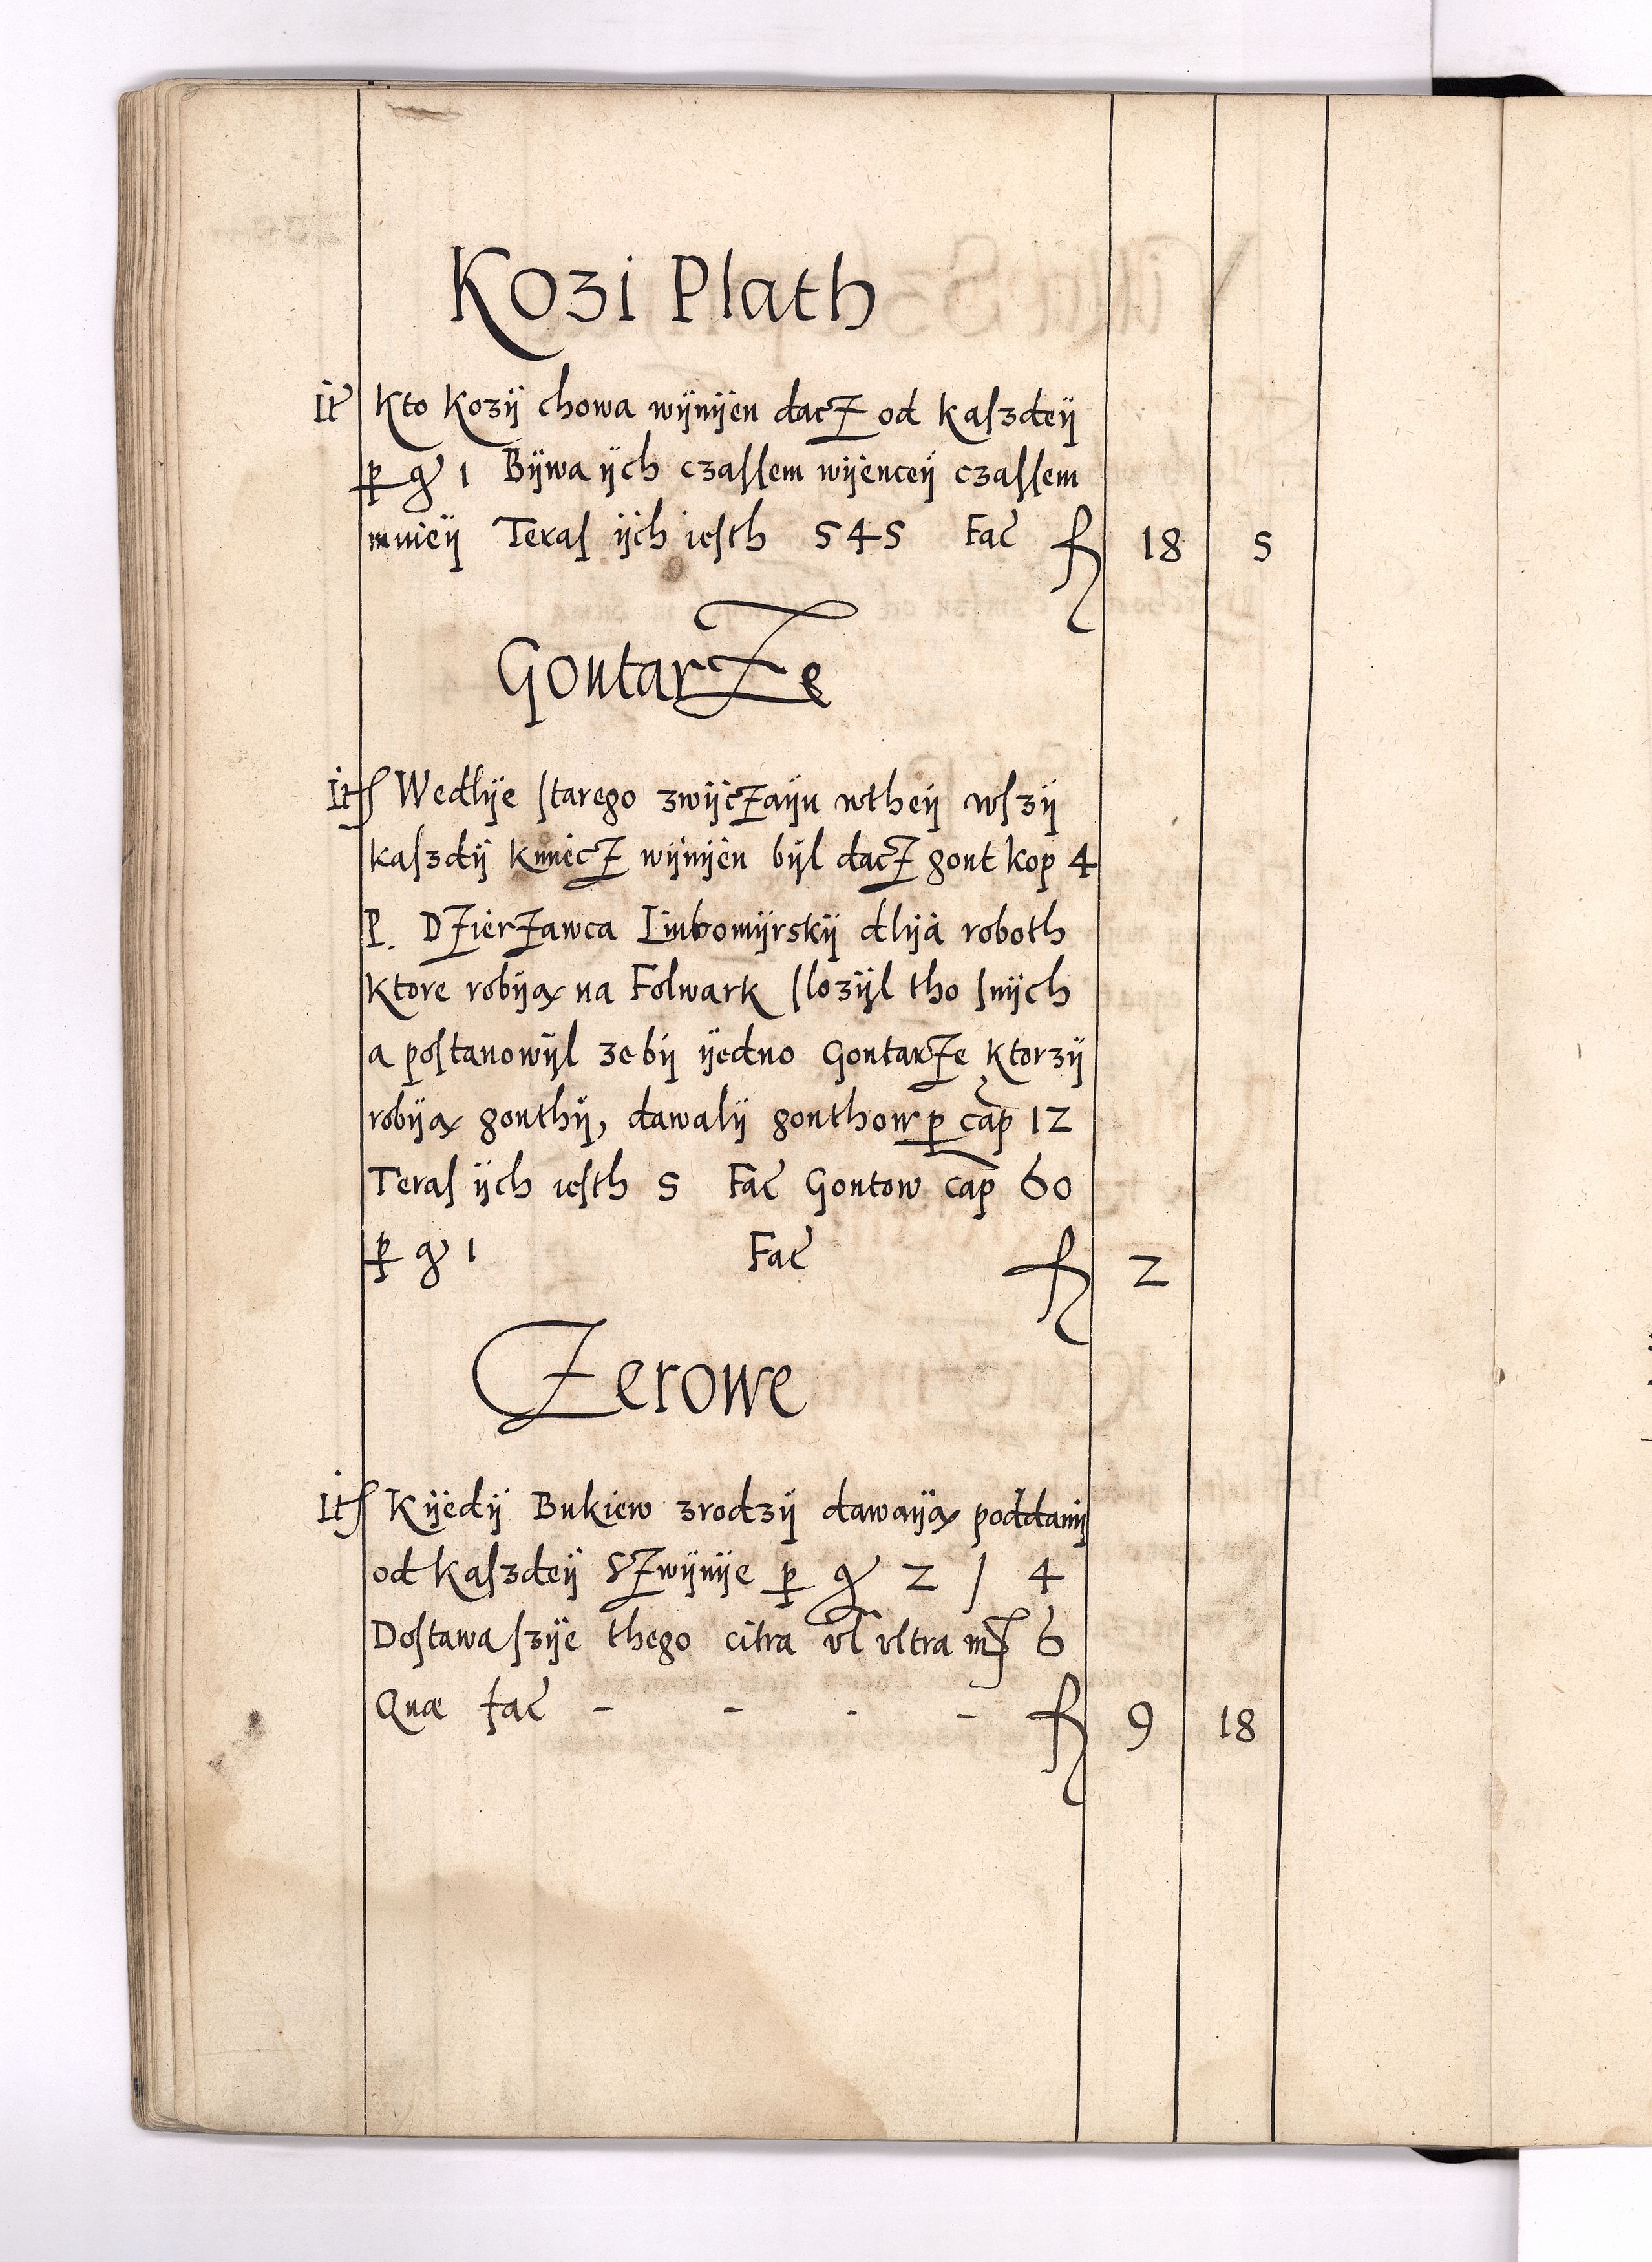 Kozi Plath
It Kto Kozÿ chowa wÿnÿen dacz od kaſzdeÿ
p gr 1 Bÿwa ÿch czaſſem wÿenceÿ czaſſem
mnieÿ Teraſ ÿch ieſth 545 Fac fl 18 5
Gontarze
It Wedlÿe ſtarego zwÿczaÿu wtheÿ wſzÿ
kaſzdÿ kmiecz wÿnÿen bÿl dacz gont kop 4
P. Dzierzawca Liubomÿrskÿ dlÿa roboth
ktore robÿą na Folwark ſlozÿl tho ſnÿch
a poſtanowÿl zebÿ ÿedno Gontarze ktorzÿ
robÿą gonthÿ, dawalÿ gonthow p cap 12
Teraſ ÿch ieſth 5 Fac Gontow cap 60
p gr 1 Fac fl 2
Zerowe
It Kÿedÿ Bukiew zrodzÿ dawaÿą poddanÿ
od kaſzdeÿ Szwÿnÿe p gr 2 / 4
Doſtawa ſzÿe thego citra vl vltra mr 6
Quæ fac - - - - fl 9 18